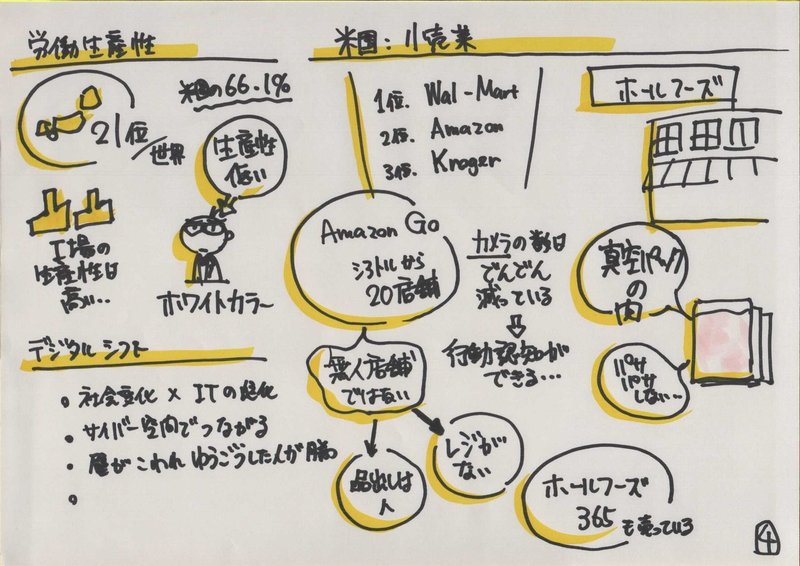 労働生産性
米国の66.1%
21位/世界
生産性
低い
工場の
生産性は
高い…
ホワイトカラー
デジタルシフト
・社会変化 × ITの進化
・サイバー空間でつながる
・壁がこわれ ゆうごうした人が勝
・
米国:小売業
1位. Wal-Mart
2位. Amazon
3位. Kroger
Amazon Go
シアトルから
20店舗
無人店舗
ではない
品出しは
人
レジが
ない
カメラの数は
どんどん
減っている
⇩
行動認知が
できる…
ホールフーズ
真空パック
の肉
パサ
パサ
しない…
ホールフーズ
365も売っている
4